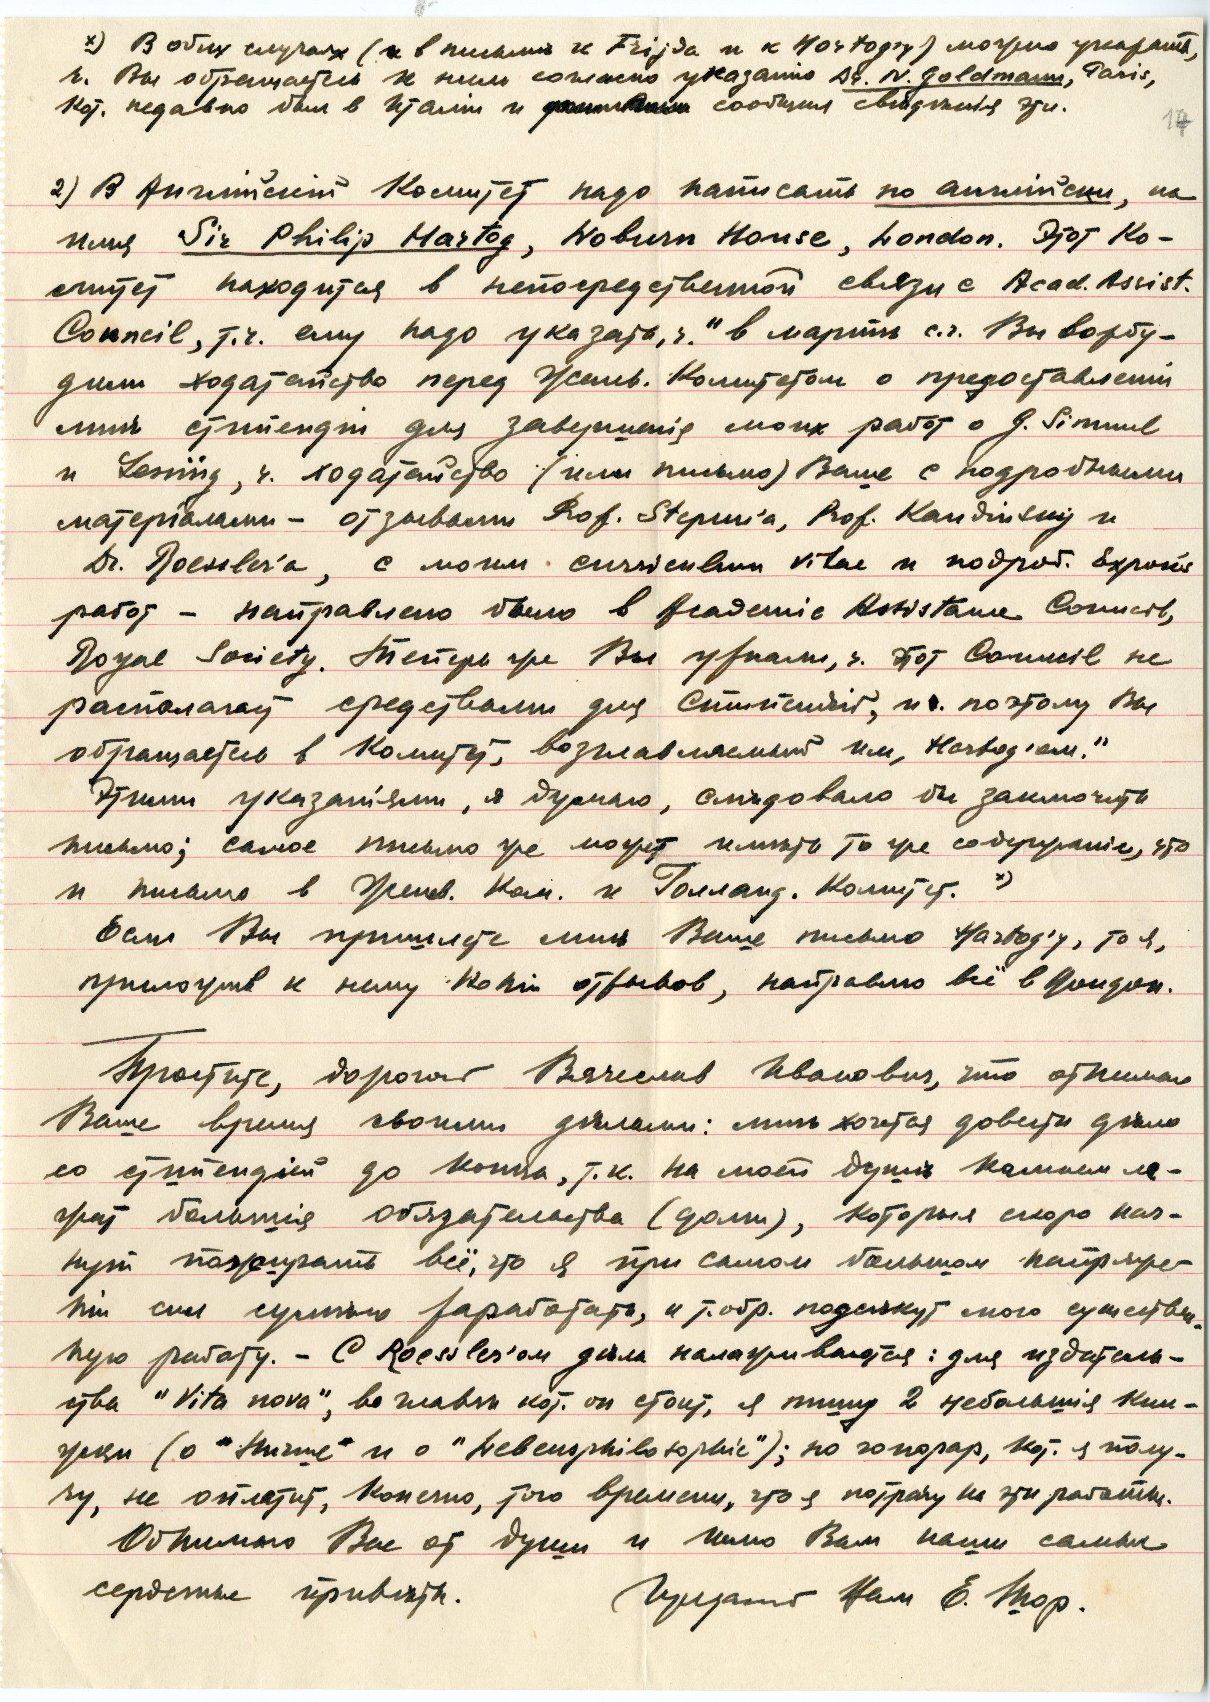 х) В обоих случаях (и в письмѣ к Frijda и к Hartog'у) можно указать,
ч. Вы обращаетесь к ним согласно указанию Dr. N. Goldmann, Paris,
кот. недавно был в Италіи и сообщил свѣдѣнія эти.
17
2) В Англійскій Комитет надо написать по англійски, на
имя Sir Philip Hartog, Woburn House, London. Этот Ко-
митет находится в непосредственной связи с Acad. Assist.
Council, т.ч. ему надо указать, ч. "в мартѣ с.г. Вы возбу-
дили ходатайство перед Жен. Комитетом о предоставленіи
мнѣ стипендіи для завершенія моих работ о G. Simmel
и Lessing, ч. ходатайство (или письмо) Ваше с подробными
матеріалами – отзывами Prof. Stepun'a, Prof. Kandinskij и
Dr. Roessler'a, с моим curriculum vitae и подроб. Exposés
работ – направлено было в Academic Assistance Council,
Royal Society. Теперь же Вы узнали, ч. этот Council не
располагает средствами для стипендій, и ч. поэтому Вы
обращаетесь в Комитет, возглавляемый им, Hartog'ом."
Этими указаніями, я думаю, слѣдовало бы заключить
письмо; самое письмо же может имѣть то же содержаніе, что
и письмо в Женев. Ком. и Голланд. Комитет. х)
Если Вы пришлете мнѣ Ваше письмо Hartog'у, то я,
приложив к нему копіи отзывов, направлю всё в Лондон.
Простите, дорогой Вячеслав Иванович, что отнимаю
Ваше время своими дѣлами: мнѣ хочется довести дѣло
со стипендіей до конца, т.к. на моей душѣ камнем ле-
жат большія обязательства (долги), которыя скоро нач-
нут пожирать всё, что я при самом большом напряже-
ніи сил сумѣю заработать, и т.обр. подсѣкут мою существен-
ную работу. – С Roessler'ом дѣла налаживаются: для издатель-
ства "Vita nova", во главѣ кот. он стоит, я пишу 2 небольшія кни-
жки (о "Ницше" и о "Lebensphilosophie"); но гонорар, кот. я полу-
чу, не оплатит, конечно, того времени, что я потрачу на эти работы.
Обнимаю Вас от души и шлю Вам наши самые
сердечные привѣты. Преданный Вам Е. Шор.